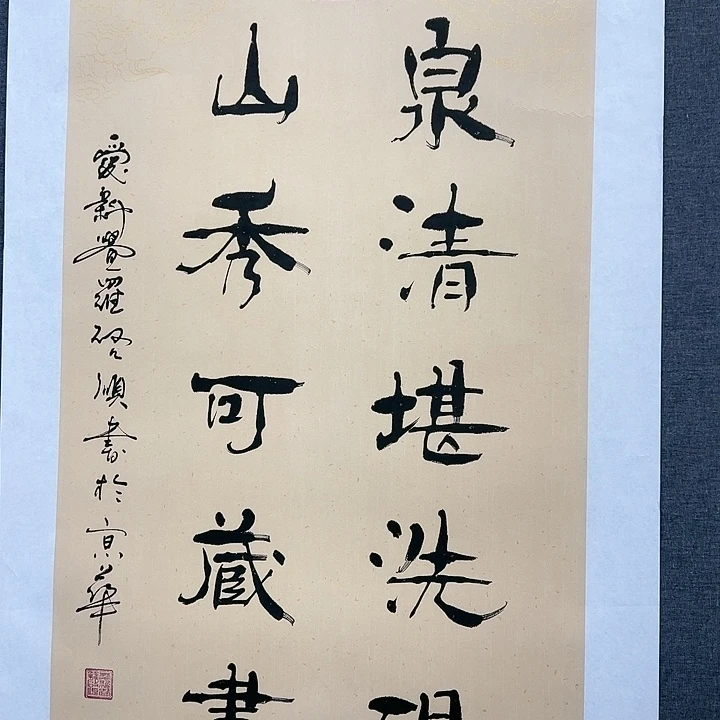 泉清堪洗砚
山秀可藏書
愛新覺羅啓順書於京華